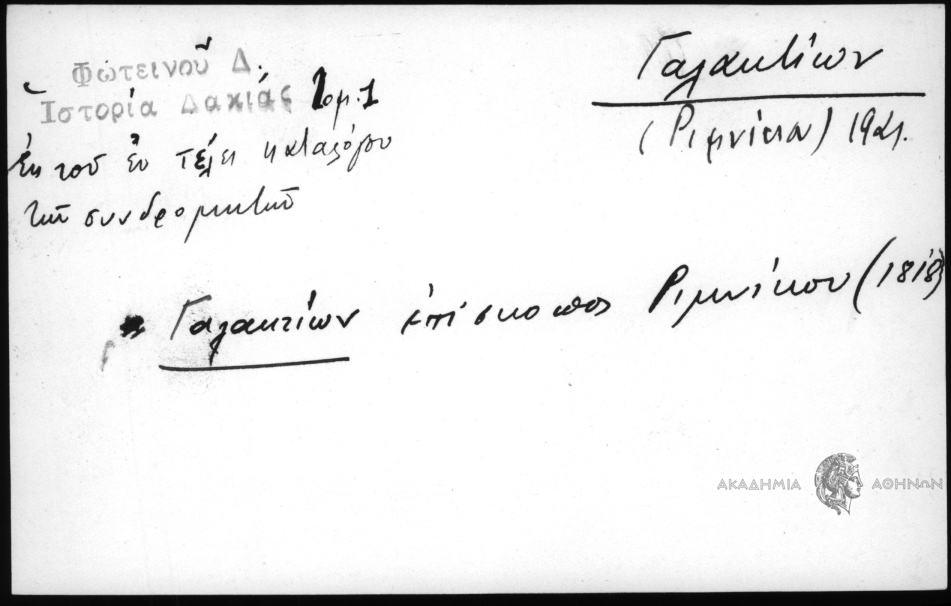 Φωτεινοῦ Δ.
Ἱστορία Δακίας Τομ. 1
Ἐκ τοῦ ἐν τέλει καταλόγου
τῶν συνδρομητῶν
Γαλακτίων
(Ριμνίκου)
Γαλακτίων ἐπίσκοπος Ριμνίκου (1818)
ΑΚΑΔΗΜΙΑ ΑΘΗΝΩΝ